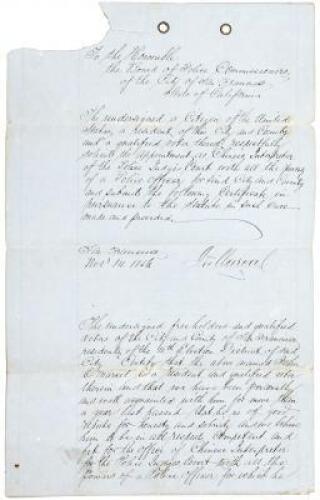 To the Honorable
the Board of Police Commissioners,
of the City of San Francisco
State of California
The undersigned a Citizen of the United
States, a resident of this City and County
and a qualified voter thereof respectfully
solicits the appointment as Chinese Interpreter
of the Police Judges Court with all the powers
of a Police officer for said City and County
and submits the following Certificate in
pursuance to the statute in such case
made and provided.
San Francisco
Nov 14. 1856
The undersigned freeholders and qualified
voters of the City and County of San Francisco
residents of the Election District of said
City Certify that the above named
is a resident and qualified voter
therein and that we have been personally
and well acquainted with him for more than
a year last passed that he is of good
repute for honesty and sobriety and we believe
him to be in all respects Competent and
fit for the office of Chinese Interpreter
for the Police Judges Court with all the
powers of a Police officer for which he